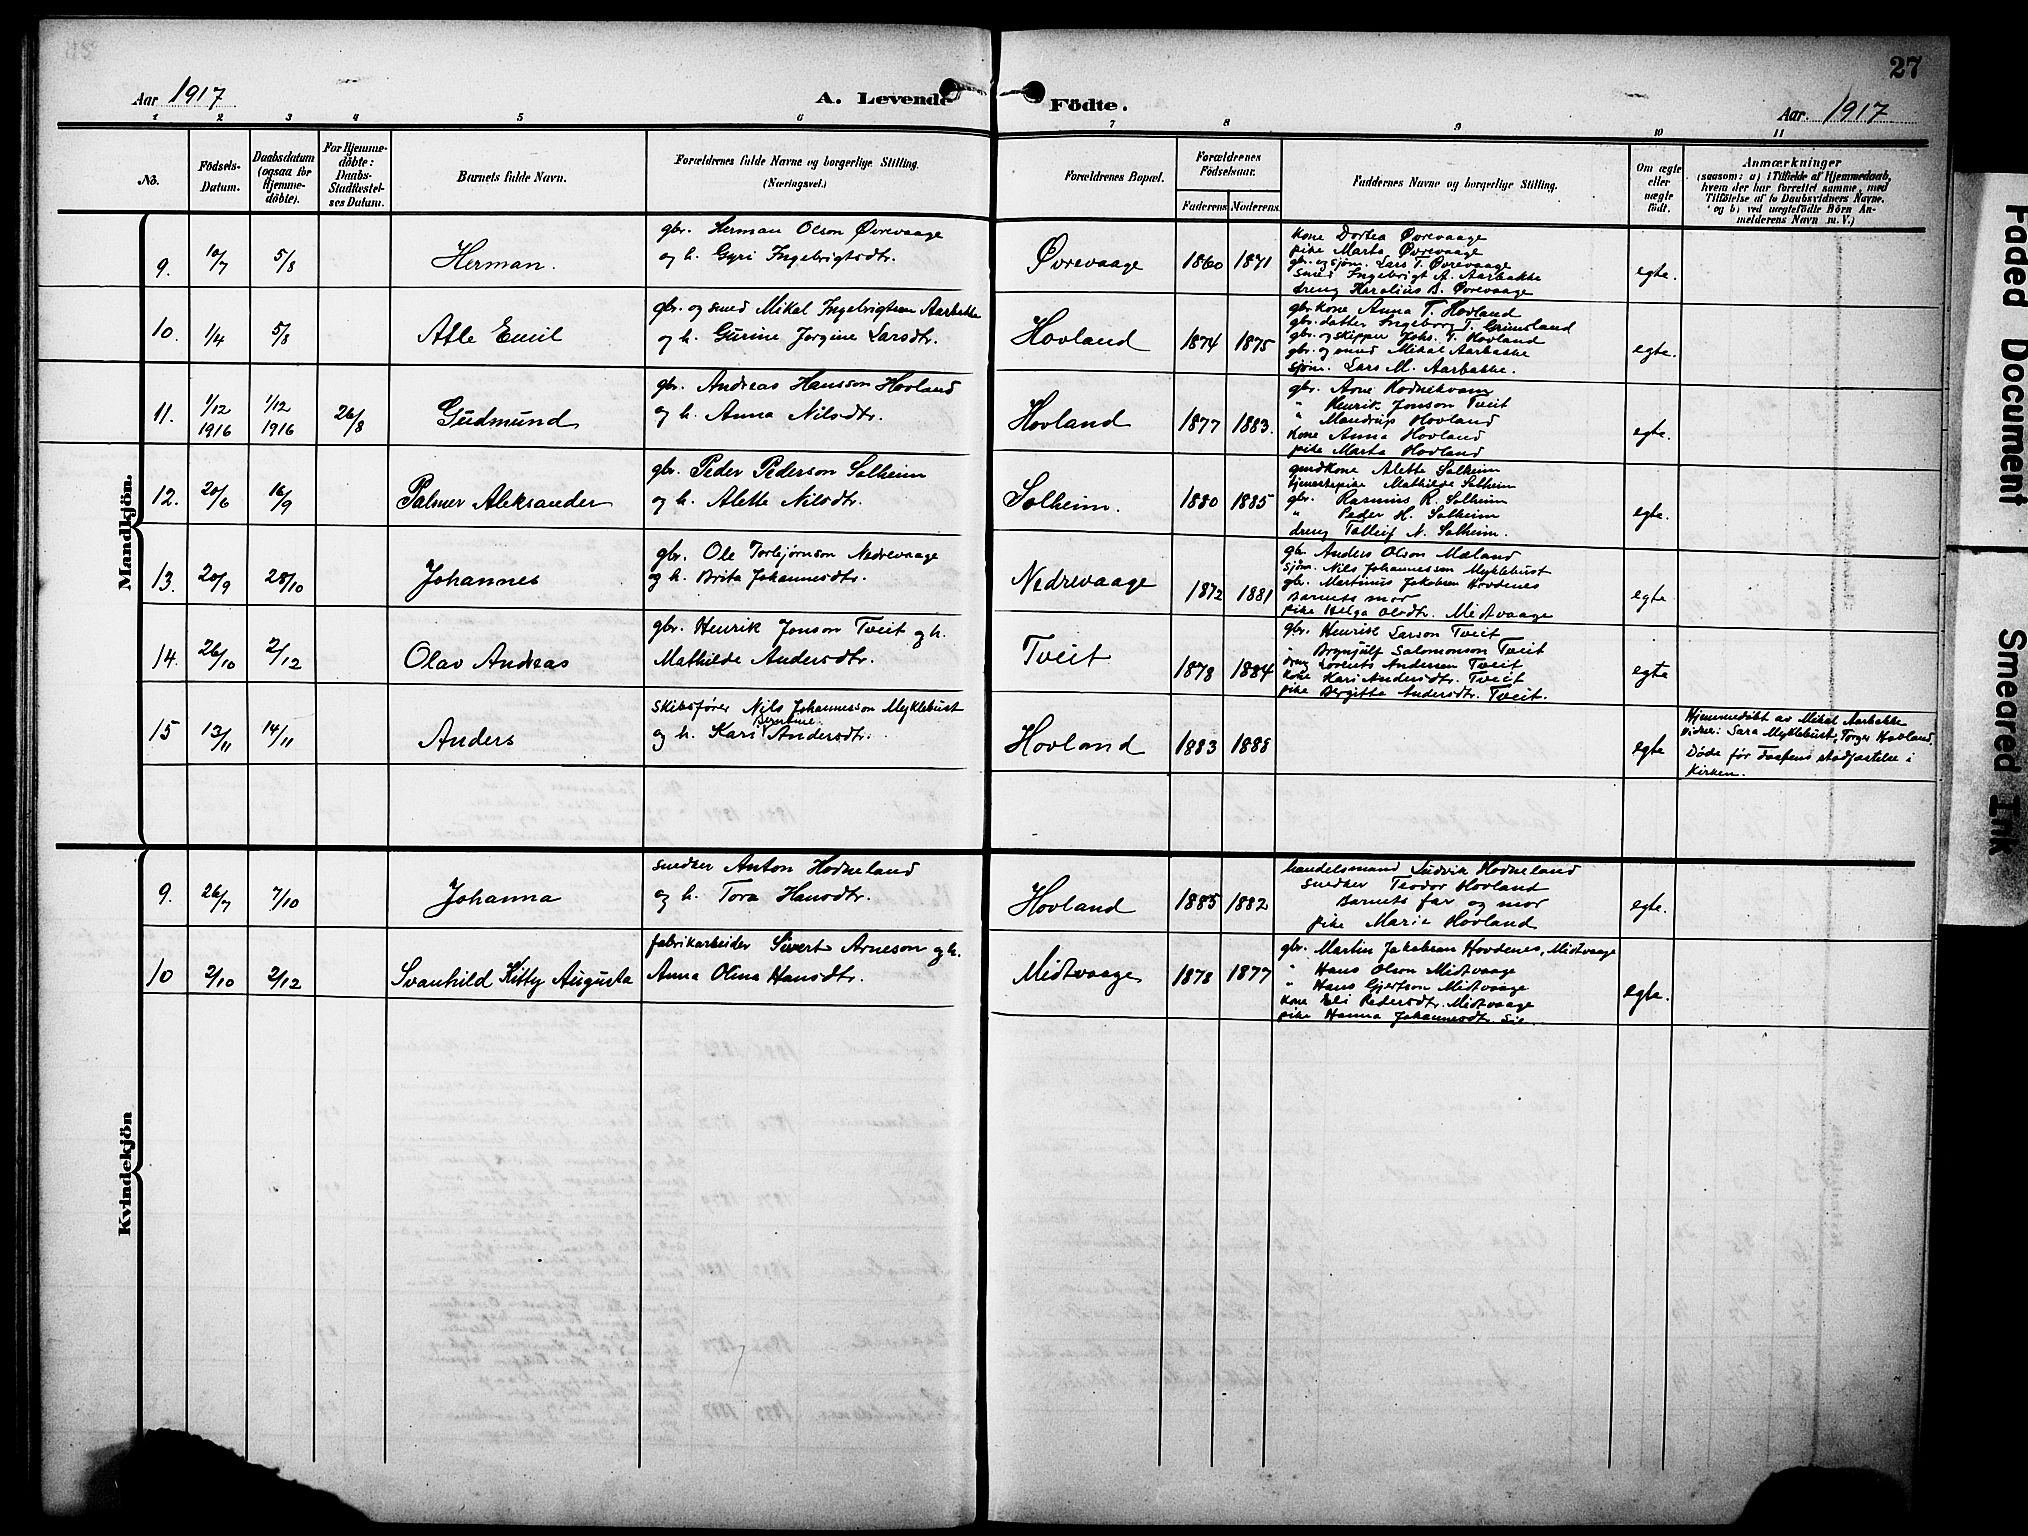 27
Aar 1917
A. Levende Födte.
Aar. 1917
1 2 3 4 5 6 7 8 9 10 11
No.
Födsels-Datum.
Daabsdatum (ogsaa for Hjemmedöbte).
For Hjemmedöbte: Daabs-Stadfæstelses Datum.
Barnets fulde Navn.
Forældrenes fulde Navne og borgerlige Stilling.
(Næringsvei.)
Forældrenes Bopæl.
Forældrenes Födselsaar.
Faderens Moderens
Faddernes Navne og borgerlige Stilling.
Om ægte eller uægte födt.
Anmærkninger
(saasom: a) i Tilfælde af Hjemmedaab,
hvem der har forrettet samme, med
Tilföielse af to Daabsvidners Navne.
og b) ved uægtefödte Börn An-
melderens Navn m. V.)
Mandkjön.
9. 10/7 5/8 Herman.
gbr. Herman Olson Øvrevaage
og h. Gyri Ingebrigtsdtr.
Øvrevaage 1860 1871
kone Dortea Øvrevaage
pike Marta Øvrevaage
gbr. og sjøm. Lars T. Øvrevaage
smed Ingebrigt A. Aarbakke
dreng Øvrevaage
egte.
10. 1/4 5/8 Atle Emil
gbr. og smed Mikal Ingebrigtsen Aarbakke
og h. Gurine Jørgine Larsdtr.
Hovland 1874 1875
gbr. kone Anna T. Hovland
gbr. datter Ingeborg T. Grimsland
gbr. og skipper Johs. T. Hovland
gbr. og smed Mikal Aarbakke
sjøm. Lars M. Aarbakke.
egte.
11. 1/12 1916 1/12 1916 26/8 Gudmund
gbr. Andreas Hansson Hovland
og h. Anna Nilsdtr.
Hovland 1877 1883.
gbr. Arne Rodnekvam
" Henrik Jonson Tveit
" Mandrup Hovland
kone Anna Hovland
pike Marta Hovland
egte.
12. 20/6 16/9 Palmer Aleksander
gbr. Peder Pederson Solheim
og h. Alette Nilsdtr.
Solheim. 1880 1885
gmdkone Alette Solheim
tjenestepike Mathilde Solheim
gbr. Rasmus R. Solheim
" Peder H. Solheim
dreng Tolleif N. Solheim.
egte.
13. 20/9 28/10 Johannes
gbr. Ole Torbjørnson Nedrevaage
og h. Brita Johannesdtr.
Nedrevaage 1872 1881
gbr. Anders Olson Mæland
sjøm. Nils Johannesson Myklebust
gbr. Martinus Jakobsen Hovdenes
Barnets mor
pike Helga Olsdtr. Midtvaage
egte
14. 26/10 2/12 Olav Andreas
gbr. Henrik Jonson Tveit og h.
Mathilde Andersdtr.
Tveit 1878 1884
gbr. Henrik Larson Tveit
" Brynjulf Salomonson Tveit
dreng Lorents Andersen Tveit
kone Kari Andersdtr. Tveit
pike Birgitta Andersdtr. Tveit.
egte
15 13/11 14/11 Anders
skibsfører Nils Johannesson Myklebust
og h. Kari Berntine Andersdtr.
Hovland 1883 1888
egte
Hjemmedøbt av Mikal Aarbakke
vidner: Sara Myklebust, Torger Hovland.
Døde før daapens stadfæstelse i
Kirken.
Kvindekjön
9. 26/7 7/10 Johanna
snedker Anton Hodneland
og h. Tora Hansdtr.
Hovland 1885 1882
handelsmand Ludvik Hodneland
snedker Teodor Hovland
Barnets far og mor
pike Marie Hovland
egte.
10 2/10 2/12 Svanhild Kitty Augusta
fabrikarbeider Sivert Arneson og h.
Anna Olina Hansdtr.
Midtvaage 1878 1877
gbr. Martin Jakobsen Hovdenes, Midtvaage
" Hans Olson Midtvaage
" Hans Gjertson Midtvaage
kone Eli Pedersdtr. Midtvaage
pike Hanna Johannesdtr.
egte.
Faded Document
Smeared Ink